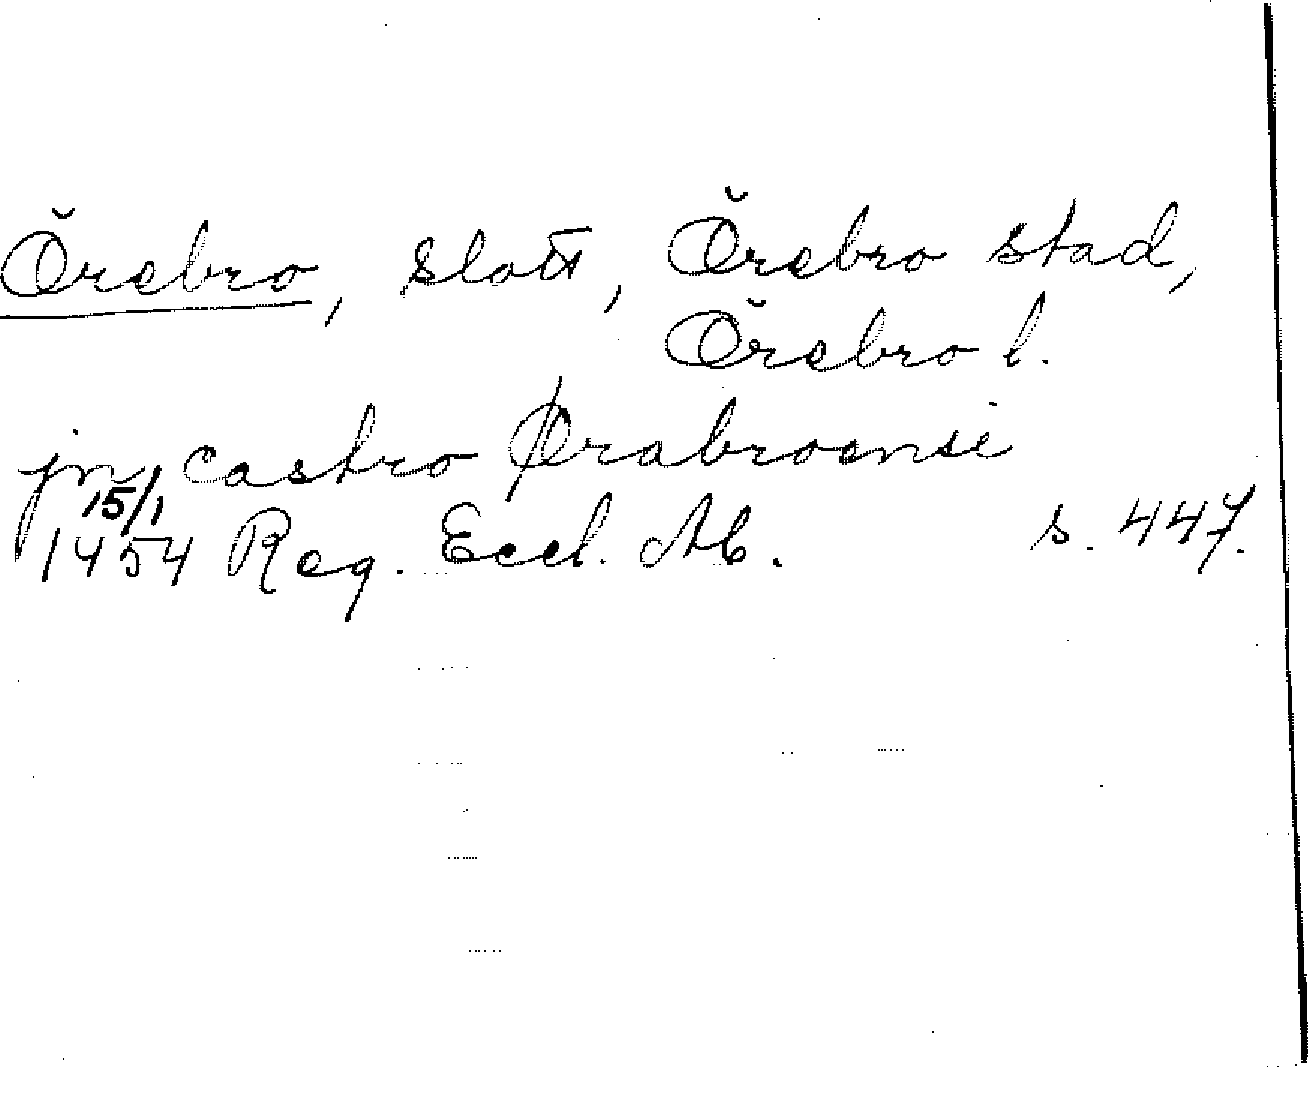 Örebro, slott, Örebro stad,
Örebro l.
jn castro Ørabroensi
15/1
1454 Reg. Eccl. Ab. s. 447.